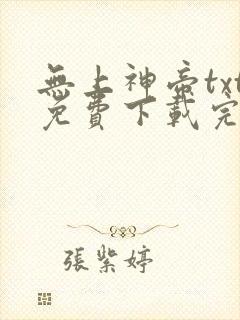 無上神帝txt
免費下載完
張紫婷